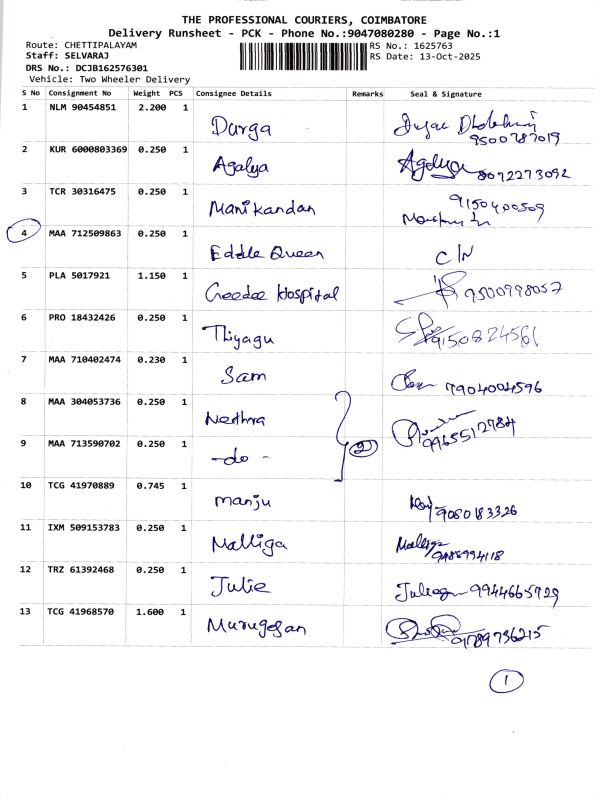 THE PROFESSIONAL COURIERS, COIMBATORE
Delivery Runsheet - PCK - Phone No.:9047080280 - Page No.:1
Route: CHETTIPALAYAM RS No.: 1625763
Staff: SELVARAJ RS Date: 13-Oct-2025
DRS No.: DCJB162576301
Vehicle: Two Wheeler Delivery
S No Consignment No Weight PCS Consignee Details Remarks Seal & Signature
1 NLM 90454851 2.200 1 Durga
9500787019
2 KUR 6000803369 0.250 1 Agalya Agalya 8072273092
3 TCR 30316475 0.250 1 Manikandan 9150400509
4 MAA 712509863 0.250 1 Eddle Queen C/N
5 PLA 5017921 1.150 1 Geedee Hospital 9500998057
6 PRO 18432426 0.250 1 Thiyagu 9150824561
7 MAA 710402474 0.230 1 Sam 7904004596
8 MAA 304053736 0.250 1 Nethra
9 MAA 713590702 0.250 1 -do- 2 9965512784
10 TCG 41970889 0.745 1 manju 9080183326
11 IXM 509153783 0.250 1 Malliga Malliga
9488994118
12 TRZ 61392468 0.250 1 Julie 9944665729
13 TCG 41968570 1.600 1 Murugesan 9789736215
1